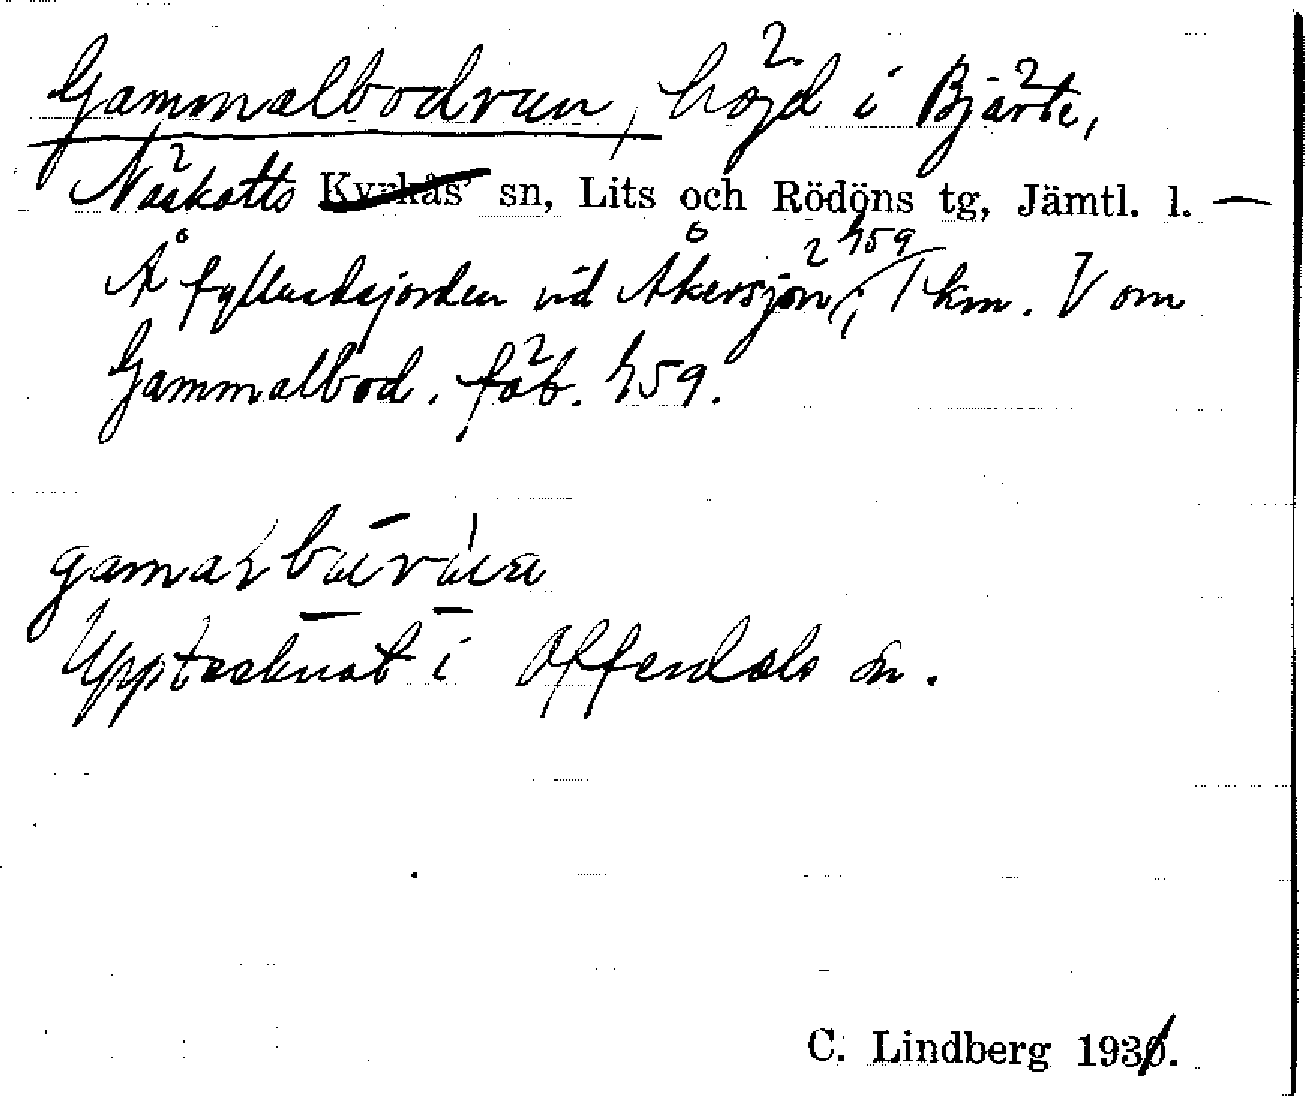 Gammalbodvun, höjd i Bjärte,
Näskotts Kyrkås' sn, Lits och Rödöns tg, Jämtl. l. —
Å fyllnadsjorden vid Åkersjön, h59, 1 km. V om
Gammalbod. fäb. h59.
Upptecknat i Offerdals sn.
C. Lindberg 1931.